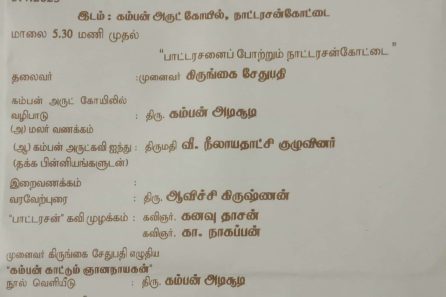 இடம் : கம்பன் அருட் கோயில், நாட்டரசன்கோட்டை
மாலை 5.30 மணி முதல்
"பாட்டரசனைப் போற்றும் நாட்டரசன்கோட்டை"
தலைவர் :முனைவர் கிருங்கை சேதுபதி
கம்பன் அருட் கோயிலில்
வழிபாடு : திரு. கம்பன் அடிசூடி
(அ) மலர் வணக்கம்
(ஆ) கம்பன் அருட்கவி ஐந்து : திருமதி வீ. நீலாயதாட்சி குழுவினர்
(தக்க பின்னியங்களுடன்)
இறைவணக்கம் :
வரவேற்புரை : திரு. ஆவிச்சி கிருஷ்ணன்
"பாட்டரசன்" கவி முழக்கம் : கவிஞர். கனவு தாசன்
கவிஞர். கா. நாகப்பன்
முனைவர் கிருங்கை சேதுபதி எழுதிய
"கம்பன் காட்டும் ஞானநாயகன்"
நூல் வெளியீடு : திரு. கம்பன் அடிசூடி